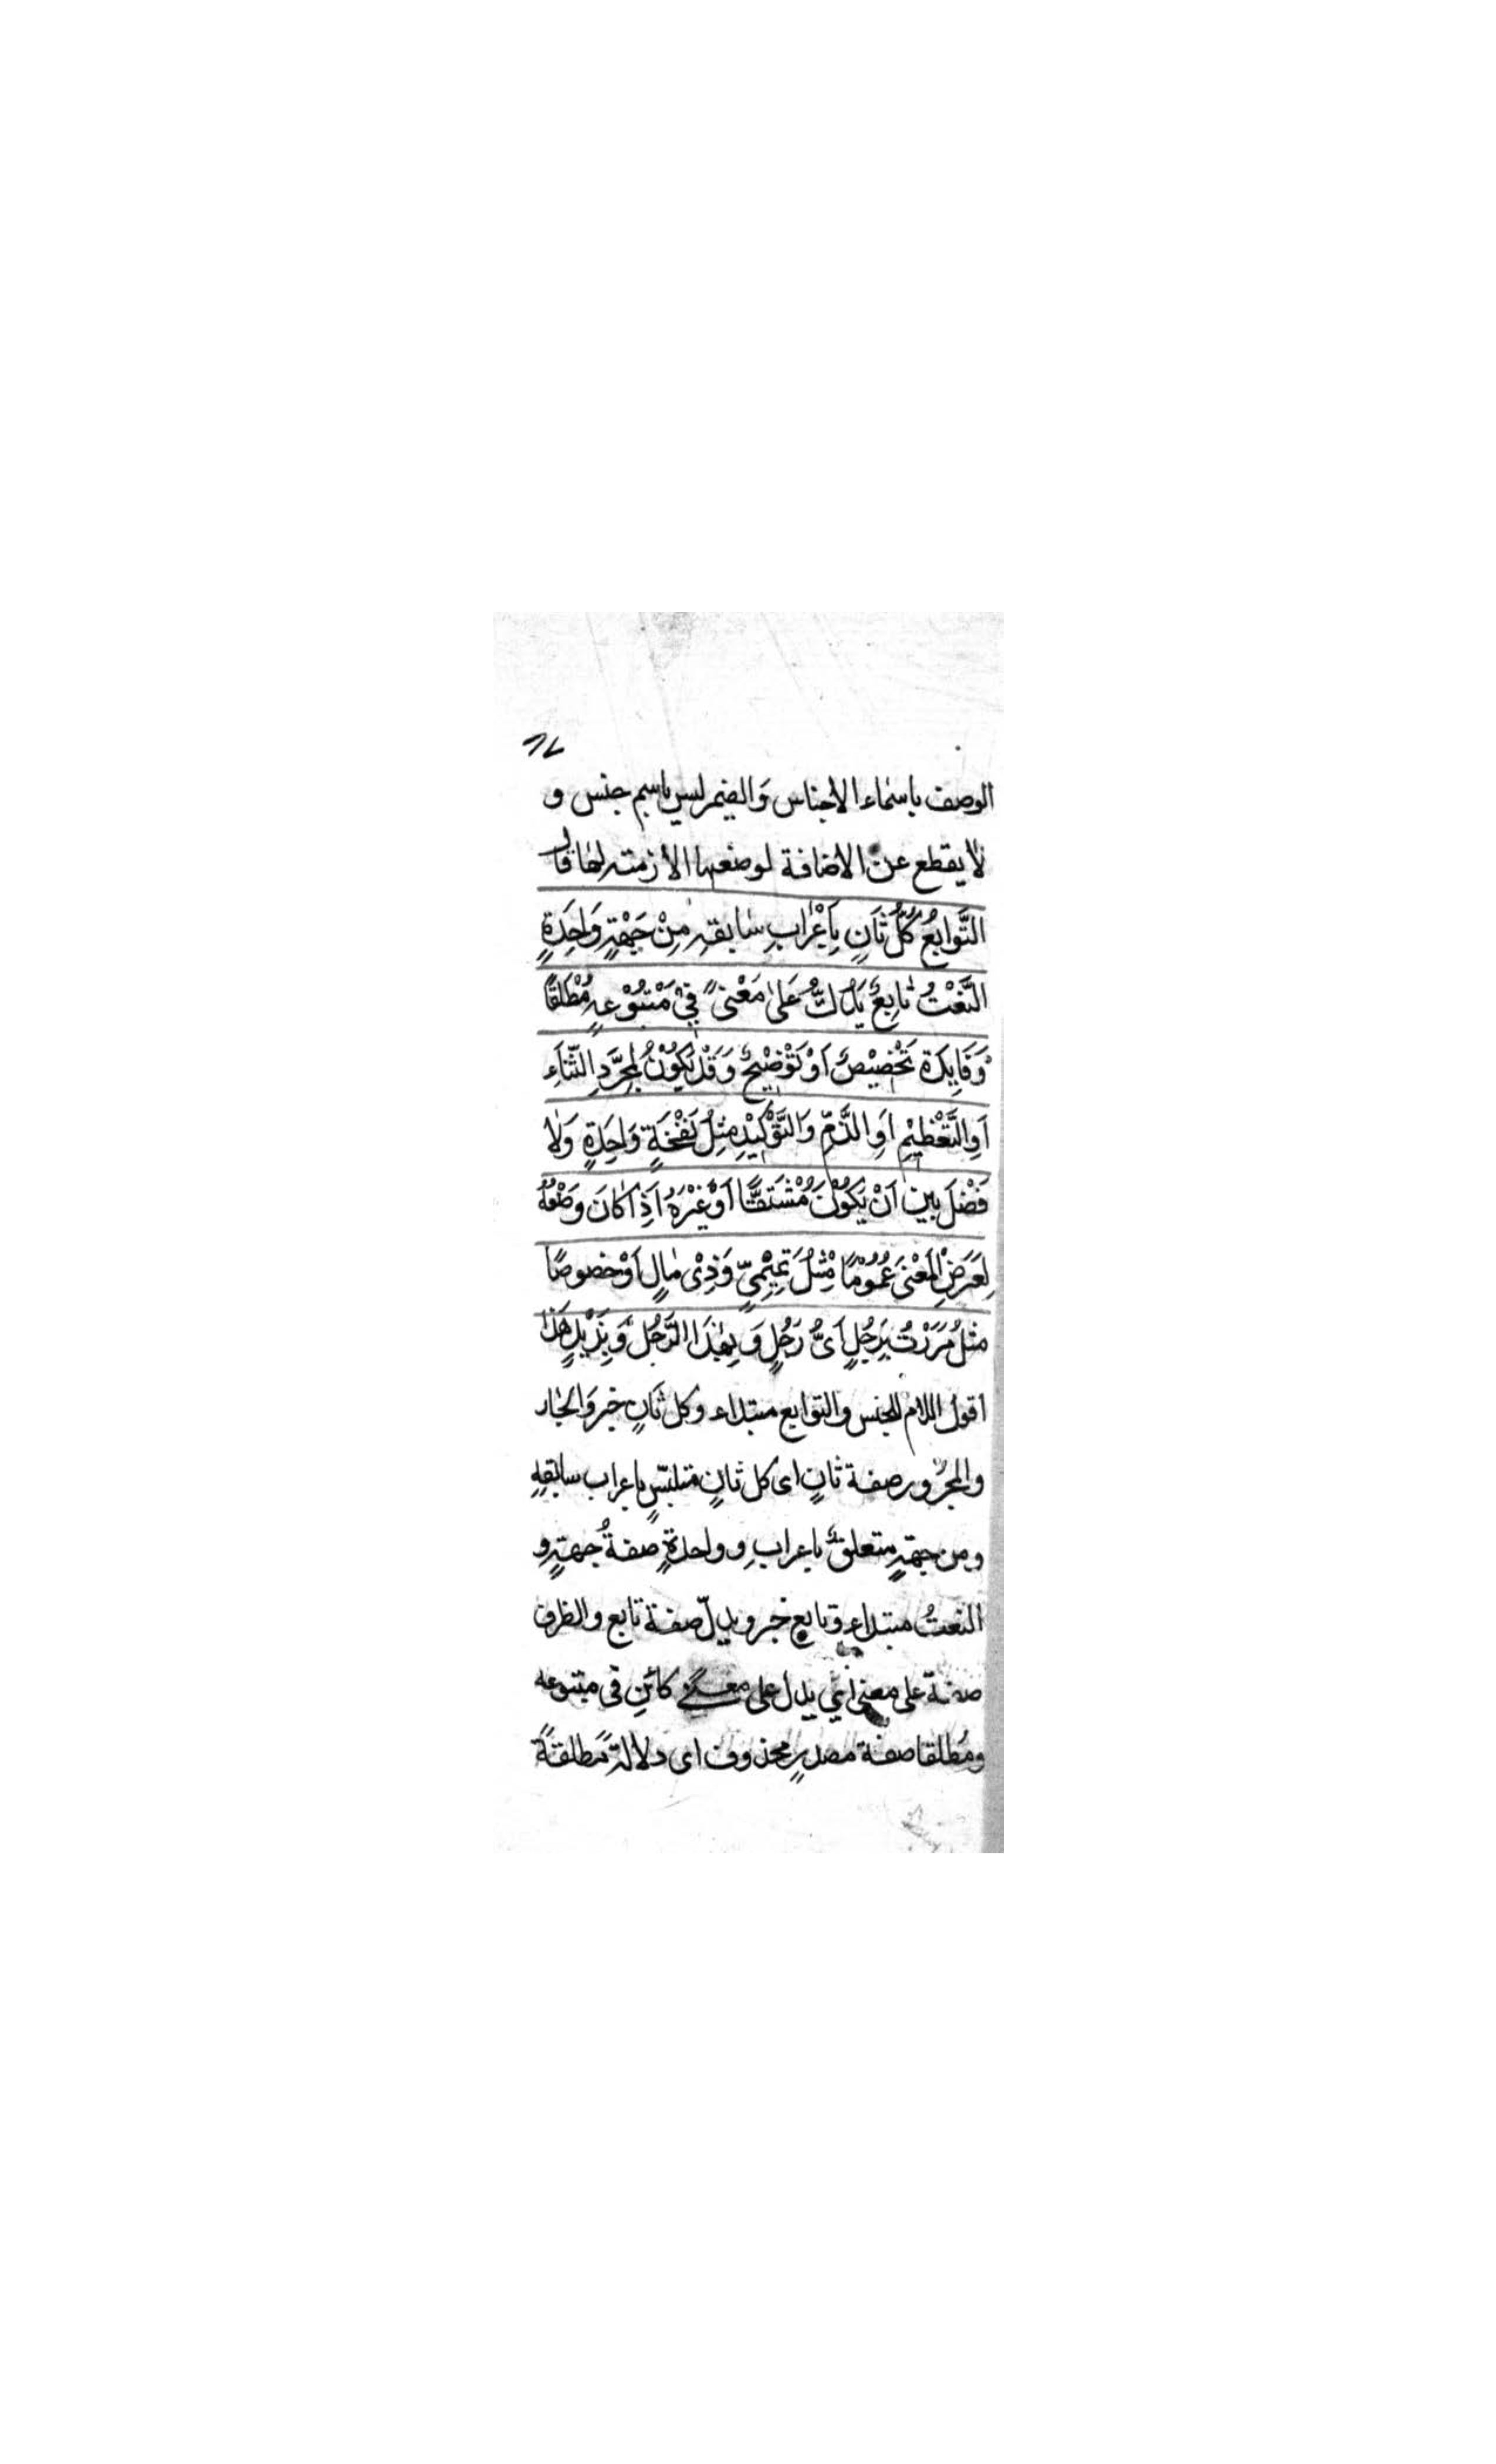 الوصف باسماء الاجناس وَالضمير ليس باسم جنس و
لا يقطع عن الاضافة لوضعها لازمته لها قال
التَّوَابِعُ كُلُّ ثَانٍ بِاَعْرَابِ سَابِقِهِ مِنْ جِهْتٍ وَاحِدَةٍ
النَّعْتُ تَابِعٌ يَدُلُّ عَلٰى مَعْنىً فِيْ مَتْبُوْعِهِ مُطْلَقًا
وَفَايِدَة تَخْصِيْصٌ اَوْ تَوْضِيْحٌ وَقَدْ يَكُوْنُ لِمُجَرَّدِ الثَّنَاءِ
اَوِ التَّعْظِيْمِ اَوِ الذَّمِّ وَالتَّوْكِيْدِ مِثْلُ نَفْخَةٍ وَاحِدَةٍ وَلَا
فَصْلَ بين اَنْ يَكُوْنَ مُشْتَقًّا اَوْ غَيْرَهُ اَذِا كَانَ وَضْعُهُ
لِغَرَضِ الْمَعْنَى عُمُوْمًا مِثْلُ تَمِيْمِيٍّ وَذِىْ مَالٍ اَوْ خصوصًا
مثلُ مَرَرْتُ بِرَجُلٍ اَىُّ رَجُلٍ وَ بِهٰذَا الرَّجُلِ وَ بِزَيْدٍ هٰذَا
اقول اللام للجنس والتوابع مبتداء وكل ثانٍ خبر وَالجار
والمجرور صفة ثانٍ اى كل ثانٍ متلبّسٍ باعراب سابقِهِ
ومن جهةٍ متعلقٌ باعرابِ وواحدةٍ صفةُ جهتٍ و
النعتُ مبتداء وتابع خبر ويدلّ صفة تابع والظرف
صفة على معنى اي يدل على معنىً كائنٍ فى متبوعه
ومُطلقا صفة مصدرٍ محذوف اى دلالةً مطلقةً